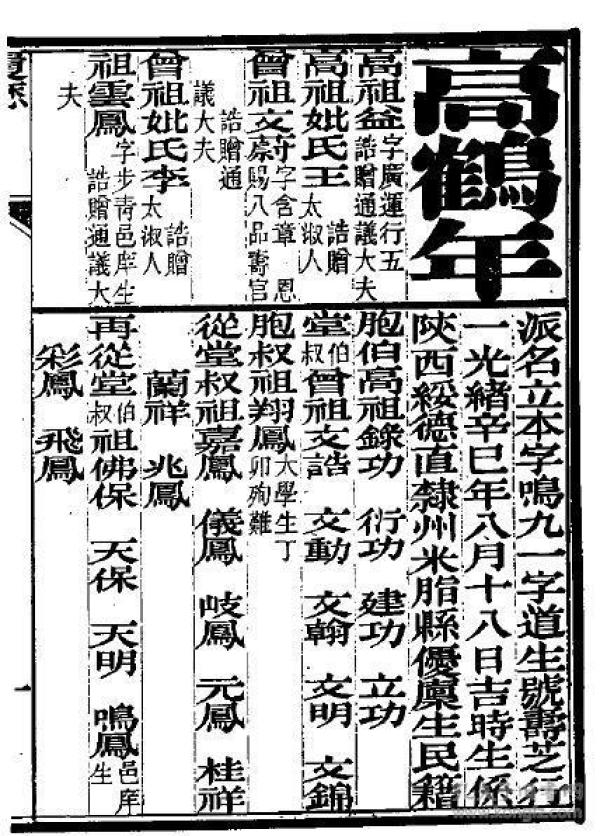 高鶴年
派名立本字鳴九一字道生號壽芝行
一光緒辛巳年八月十八日吉時生係
陝西綏德直隸州米脂縣優廩生民籍
高祖益字廣運行五誥贈通議大夫
高祖妣氏王誥贈太淑人
曾祖文蔚字含章 恩賜八品壽官
誥贈通議大夫
曾祖妣氏李誥贈太淑人
祖雲鳳字步青邑庠生誥贈通議大
夫
胞伯高祖錄功 衍功 建功 立功
堂伯叔曾祖文誥 文動 文翰 文明 文錦
胞叔祖翔鳳大學生丁卯殉難
從堂叔祖嘉鳳 儀鳳 岐鳳 元鳳 桂祥
蘭祥 兆鳳
再從堂伯叔祖佛保 天保 天明 鳴鳳邑庠生
彩鳳 飛鳳
一